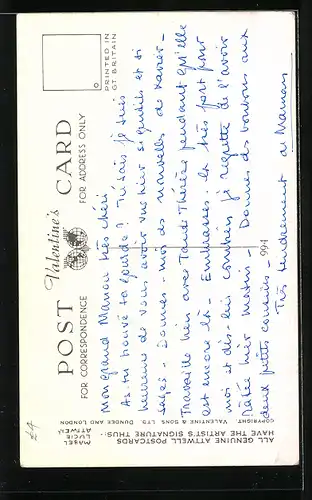 POST CARD
Valentine's
FOR CORRESPONDENCE
FOR ADDRESS ONLY
PRINTED IN
GT BRITAIN
Mon grand Manou très chéri
As-tu trouvé ta gourde? Tu sais je suis
heureuse de vous avoir vus hier si gentils et si
sages - Donnes-moi des nouvelles de Xavier -
Travaille bien avec Tante Thérèse pendant qu'elle
est encore là - Embrasses-la très fort pour
moi et dis-lui combien je regrette de l'avoir
ratée hier matin - Donnes des bonbons aux
deux petits cousins -
Très tendrement à Manou
994
ALL GENUINE ATTWELL POSTCARDS
HAVE THE ARTIST'S SIGNATURE THUS:-
MABEL
LUCIE
ATTWELL
COPYRIGHT. VALENTINE & SONS LTD. DUNDEE AND LONDON
£4